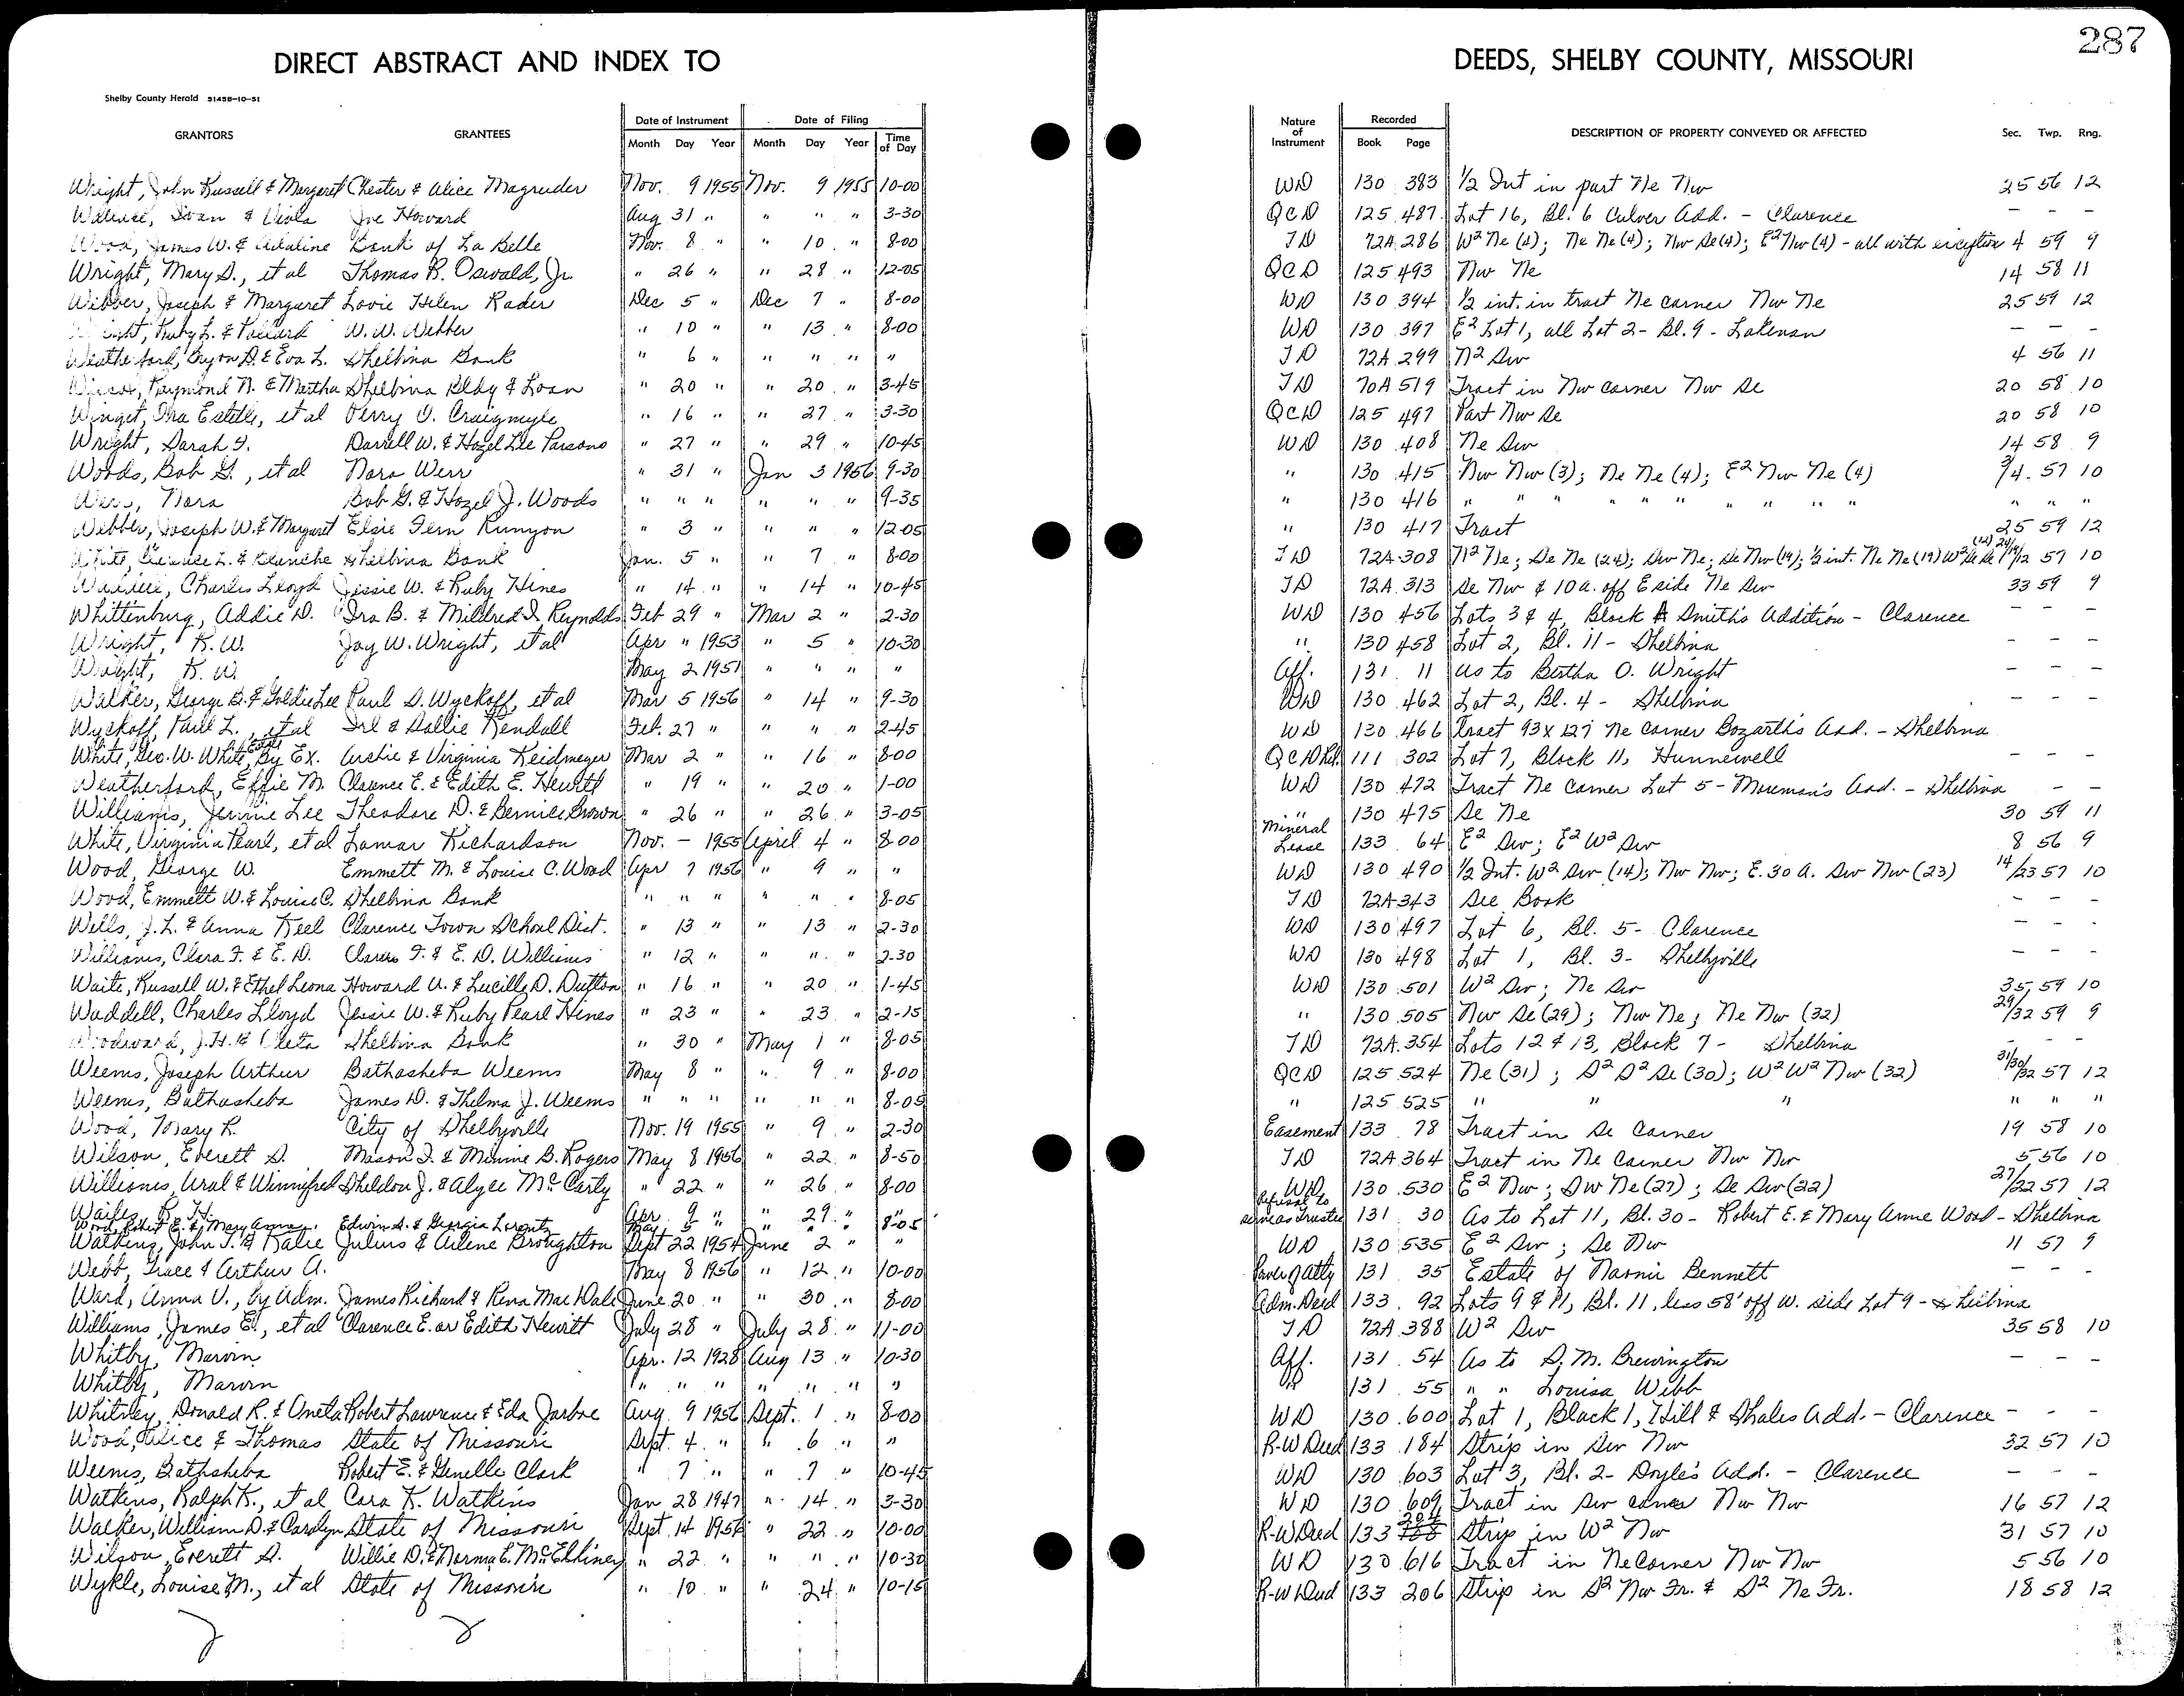 287
DIRECT ABSTRACT AND INDEX TO DEEDS, SHELBY COUNTY, MISSOURI
Shelby County Herald 51458-10-51
GRANTORS GRANTEES Date of Instrument Month Day Year Date of Filing Month Day Year Time of Day Nature of Instrument Recorded Book Page DESCRIPTION OF PROPERTY CONVEYED OR AFFECTED Sec. Twp. Rng.
Wright, John Russell & Margaret Chester & Alice Magruder Nov. 9 1955 Nov. 9 1955 10-00 WD 130 383 1/2 Int in part Ne Nw 25 56 12
Joe Howard Aug 31 " " " " 3-30 QCD 125 487 Lot 16, Bl. 6 Culver Add. - Clarence - - -
Wood, James W. & Adaline Bank of La Belle Nov. 8 " " 10 " 8-00 TD 72A 286 W² Ne (4); Ne Ne (4); Nw Se (4); E² Nw (4) - all with exception 4 59 9
Wright, Mary S., et al Thomas R. Oswald, Jr " 26 " " 28 " 12-05 QCD 125 493 Nw Ne 14 58 11
Webber, Joseph & Margaret Lovie Helen Rader Dec 5 " Dec 7 " 8-00 WD 130 394 1/2 int. in tract Ne corner Nw Ne 25 59 12
Ruby L. & Pollard W. W. Webber " 10 " " 13 " 8-00 WD 130 397 E² Lot 1, all Lot 2 - Bl. 9 - Lakenan - - -
Weatherford, Byron D. & Eva L. Shelbina Bank " 6 " " " " " TD 72A 299 N² Sw 4 56 11
Raymond N. & Martha Shelbina Bldg & Loan " 20 " " 20 " 3-45 TD 70A 519 Tract in Nw corner Nw Se 20 58 10
Winget, Ina Estelle, et al Perry O. Craigmyle " 16 " " 27 " 3-30 QCD 125 497 Part Nw Se 20 58 10
Wright, Sarah F. Darrell W. & Hazel Lee Parsons " 27 " " 29 " 10-45 WD 130 408 Ne Sw 14 58 9
Woods, Bob G., et al Nora Werr " 31 " Jan 3 1956 9-30 " 130 415 Nw Nw (3); Ne Ne (4); E² Nw Ne (4) 3/4 57 10
Werr, Nora Bob G. & Hazel J. Woods " " " " " " 9-35 " 130 416 " " " " " " " " " " " " "
Webber, Joseph W. & Margaret Elsie Fern Runyon " 3 " " " " 12-05 " 130 417 Tract 25 59 12
White, Clarence L. & Blanche Shelbina Bank Jan. 5 " " 7 " 8-00 TD 72A 308 N² Ne; Se Ne (24); Sw Ne; Se Nw (19); 1/2 int. Ne Ne (19) 57 10
Charles Lloyd Jessie W. & Ruby Hines " 14 " " 14 " 10-45 TD 72A 313 Se Nw & 10 a. off E side Ne Sw 33 59 9
Whittenburg, Addie D. Ira B. & Mildred I. Reynolds Feb 29 " Mar 2 " 2-30 WD 130 456 Lots 3 & 4, Block A Smith's Addition - Clarence - - -
Wright, R. W. Jay W. Wright, et al Apr " 1953 " 5 " 10-30 " 130 458 Lot 2, Bl. 11 - Shelbina - - -
Wright, R. W. May 2 1951 " " " " Aff. 131 11 As to Bertha O. Wright - - -
Walker, George B. & Goldie Lee Paul D. Wyckoff, et al Mar 5 1956 " 14 " 9-30 WD 130 462 Lot 2, Bl. 4 - Shelbina - - -
Wyckoff, Paul L., et al Irl & Dollie Kendall Feb. 27 " " " " 2-45 WD 130 466 Tract 93 x 127 Ne corner Bozarth's Add. - Shelbina
White, Geo. W. White Estate By Ex. Archie & Virginia Keidmeyer Mar 2 " " 16 " 8-00 QCD Rel. 111 302 Lot 7, Block 11, Hunnewell - - -
Weatherford, Effie M. Clarence E. & Edith E. Hewitt " 19 " " 20 " 1-00 WD 130 472 Tract Ne corner Lot 5 - Add. - Shelbina - -
Williams, Jennie Lee Theodore D. & Bernice Brown " 26 " " 26 " 3-05 " 130 475 Se Ne 30 59 11
White, Virginia Pearl, et al Lamar Richardson Nov. - 1955 April 4 " 8-00 Mineral Lease 133 64 E² Sw; E² W² Sw 8 56 9
Wood, George W. Emmett M. & Louise C. Wood Apr 7 1956 " 9 " " WD 130 490 1/2 Int. W² Sw (14); Nw Nw; E. 30 A. Sw Nw (23) 14/23 57 10
Wood, Emmett W. & Louise C. Shelbina Bank " " " " " " 8-05 TD 72A 343 See Book - - -
Wells, J. L. & Anna Keel Clarence Town School Dist. " 13 " " 13 " 2-30 WD 130 497 Lot 6, Bl. 5 - Clarence - - -
Williams, Clara F. & E. D. Clara F. & E. D. Williams " 12 " " " " 2-30 WD 130 498 Lot 1, Bl. 3 - Shelbyville - - -
Waite, Russell W. & Ethel Leona Howard A. & Lucille D. Dutton " 16 " " 20 " 1-45 WD 130 501 W² Sw; Ne Sw 35 59 10
Waddell, Charles Lloyd Jessie W. & Ruby Pearl Hines " 23 " " 23 " 2-15 " 130 505 Nw Se (29); Nw Ne; Ne Nw (32) 29/32 59 9
Woodward, J. H. & Cleta Shelbina Bank " 30 " May 1 " 8-05 TD 72A 354 Lots 12 & 13, Block 7 - Shelbina - - -
Weems, Joseph Arthur Bathasheba Weems May 8 " " 9 " 8-00 QCD 125 524 Ne (31); S² S² Se (30); W² W² Nw (32) 31/30/32 57 12
Weems, Bathasheba James D. & Thelma J. Weems " " " " " " 8-05 " 125 525 " " " " " "
Wood, Mary R. City of Shelbyville Nov. 19 1955 " 9 " 2-30 Easement 133 78 Tract in Se Corner 19 58 10
Wilson, Everett S. Mason F. & Minnie B. Rogers May 8 1956 " 22 " 8-50 TD 72A 364 Tract in Ne Corner Nw Nw 5 56 10
Williams, Ural & Winnifred Sheldon J. & Alyce McCarty " 22 " " 26 " 8-00 WD 130 530 E² Nw; SW Ne (27); Se Sw (22) 27/22 57 12
Wailes, R. H. Apr. 9 " " 29 " " Refusal to serve as Trustee 131 30 As to Lot 11, Bl. 30 - Robert E. & Mary Anne Wood - Shelbina
Wood, Robert E. & Mary Anne Edwin A. & Georgia Lorentz May 5 " " " " 8-05
Watkins, John T. & Katie Julius & Arlene Broughton Sept 22 1954 June 2 " " WD 130 535 E² Sw; Se Nw 11 57 9
Webb, Grace & Arthur A. May 8 1956 " 12 " 10-00 Power of Atty 131 35 Estate of Naomi Bennett - - -
Ward, Anna V., by Adm. James Richard & Rena Mae Wale June 20 " " 30 " 8-00 Adm. Deed 133 92 Lots 9 & 11, Bl. 11, less 58' off W. side Lot 9 - Shelbina
Williams, James E., et al Clarence E. or Edith Hewitt July 28 " July 28 " 11-00 TD 72A 388 W² Sw 35 58 10
Whitby, Marvin Apr. 12 1928 Aug 13 " 10-30 Aff. 131 54 As to S. M. Brewington - - -
Whitby, Marvin " " " " " " " " 131 55 " " Louisa Webb
Whitney, Donald R. & Oneta Robert Lawrence & Eda Jarboe Aug. 9 1956 Sept. 1 " 8-00 WD 130 600 Lot 1, Block 1, Hill & Shales Add. - Clarence - - -
Wood, Alice & Thomas State of Missouri Sept. 4 " " 6 " " R-W Deed 133 184 Strip in Sw Nw 32 57 10
Weems, Bathsheba Robert E. & Genelle Clark " 7 " " 7 " 10-45 WD 130 603 Lot 3, Bl. 2 - Doyle's Add. - Clarence - - -
Watkins, Ralph K., et al Cora K. Watkins Jan 28 1947 " 14 " 3-30 WD 130 609 Tract in Sw corner Nw Nw 16 57 12
Walker, William D. & Carolyn State of Missouri Sept. 14 1956 " 22 " 10-00 R-W Deed 133 204 Strip in W² Nw 31 57 10
Wilson, Everett S. Willie D. & Norma E. McElhiney " 22 " " " " 10-30 WD 130 616 Tract in Ne Corner Nw Nw 5 56 10
Wykle, Louise M., et al State of Missouri " 10 " " 24 " 10-15 R-W Deed 133 206 Strip in S² Nw Fr. & S² Ne Fr. 18 58 12